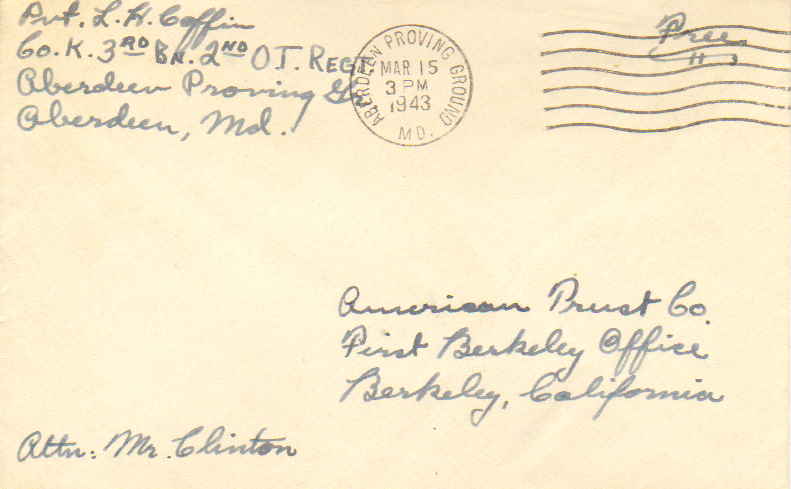 Pvt. L. H. Coffin
Co. K. 3RD BN. 2ND O.T. REGT.
Aberdeen Proving Gr.
Aberdeen, Md.
ABERDEEN PROVING GROUND
MAR 15
3 PM
1943
MD.
Free
American Trust Co.
First Berkeley Office
Berkeley, California
Attn: Mr. Clinton